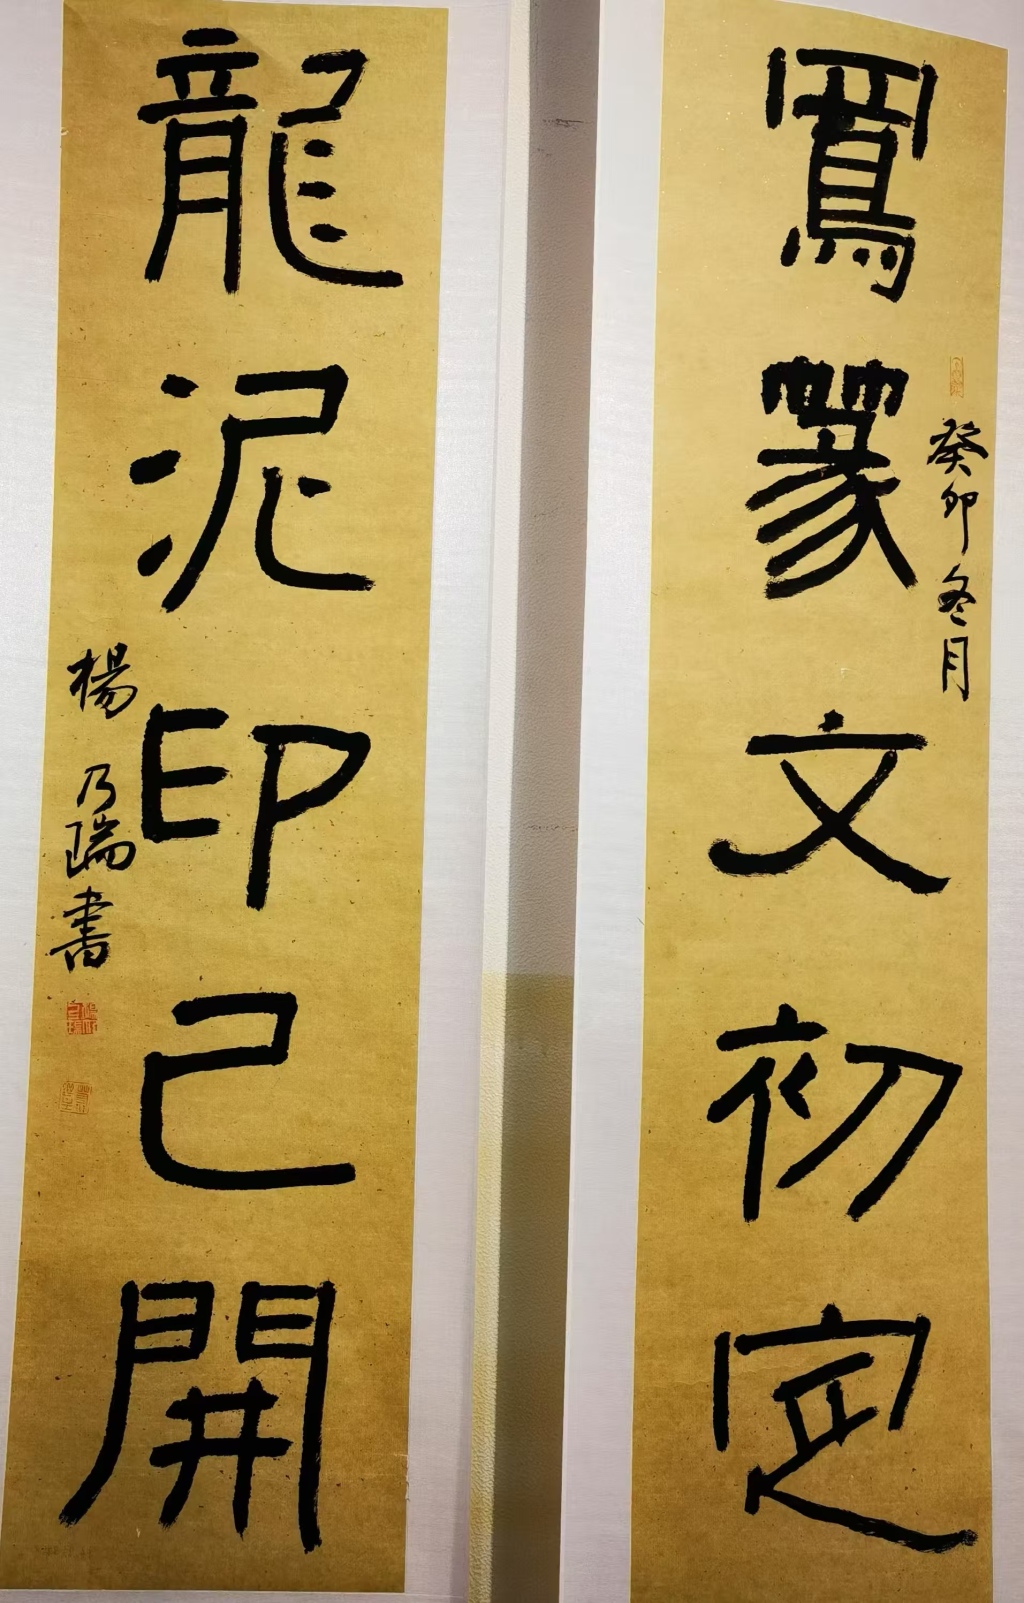 鳳篆文初定
癸卯冬月
龍泥印已開
楊乃瑞書